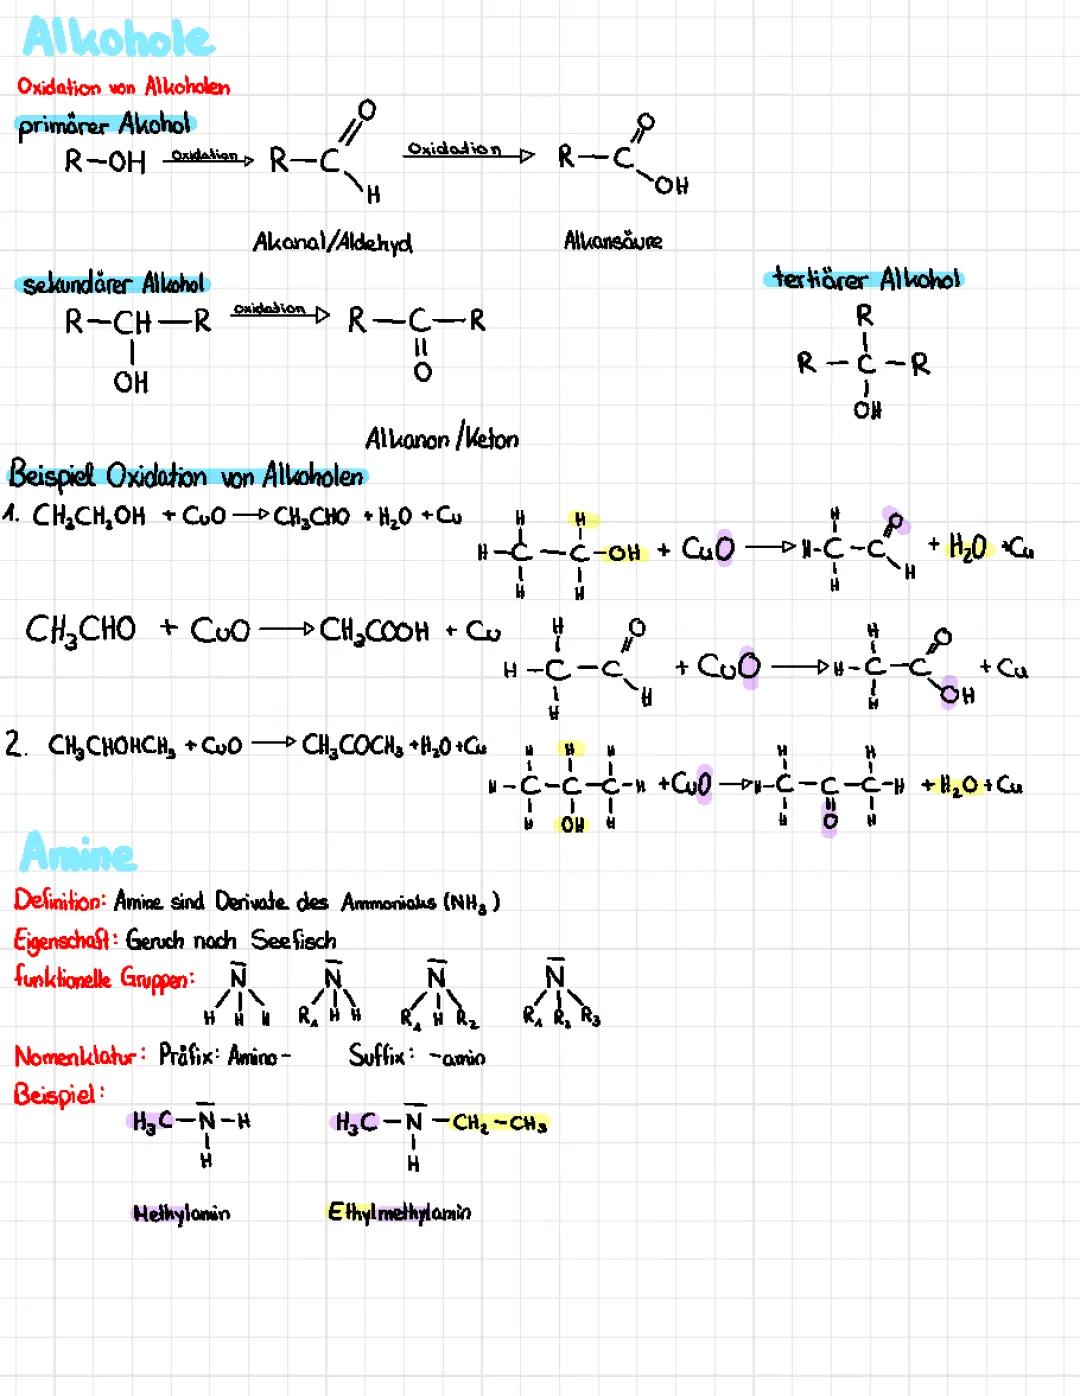 Alkohole
Oxidation von Alkoholen
primärer Akohol
R-OH Oxidation R-C O H Oxidation R-C O OH
Akanal/Aldehyd Alkansäure
sekundärer Alkohol tertiärer Alkohol
R-CH-R OH Oxidation R-C-R O R R-C-R OH
Alkanon/Keton
Beispiel Oxidation von Alkoholen
1. CH₃CH₂OH + CuO → CH₃CHO + H₂O + Cu
H H H-C-C-OH H H + CuO → H H-C-C O H H + H₂O + Cu
CH₃CHO + CuO → CH₃COOH + Cu
H O H-C-C H H + CuO → H O H-C-C OH H + Cu
2. CH₃CHOHCH₃ + CuO → CH₃COCH₃ + H₂O + Cu
H H H H-C-C-C-H H OH H + CuO → H H H-C-C-C-H H O H + H₂O + Cu
Amine
Definition: Amine sind Derivate des Ammoniaks (NH₃)
Eigenschaft: Geruch nach Seefisch
funktionelle Gruppen: N N N N
H H H R₁ H H R₁ H R₂ R₁ R₂ R₃
Nomenklatur: Präfix: Amino- Suffix: -amin
Beispiel:
H₃C-N-H H₃C-N-CH₂-CH₃
H H
Methylamin Ethylmethylamin